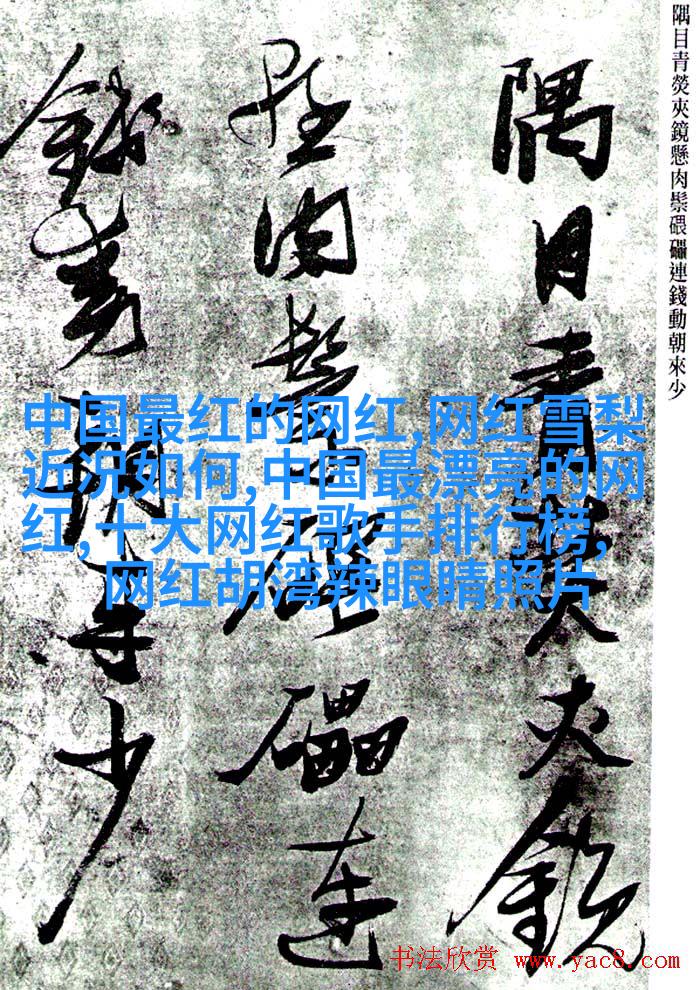 隅目青熒夾鏡懸肉鬃碨礧連錢動朝來少
隅目青熒夾鏡
懸肉鬃碨礧連
錢動朝來少
中国最红的网红,网红雪梨
近况如何,中国最漂亮的网
红,十大网红歌手排行榜,
网红胡湾辣眼睛照片
书法欣赏 www.yac8.com